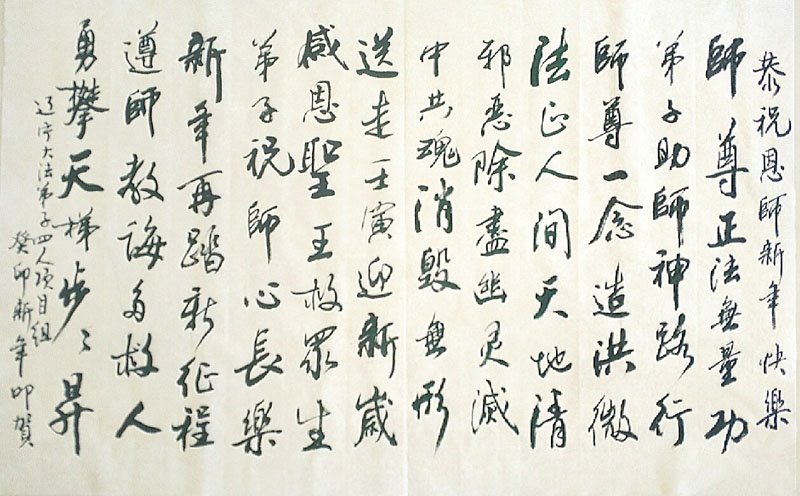 恭祝恩師新年快樂
師尊正法無量功
弟子助師神路行
師尊一念造洪微
法正人间天地清
邪惡除盡幽灵滅
中共魂消毀無形
送走壬寅迎新歲
感恩聖王救眾生
弟子祝師心長樂
新年再踏新征程
遵師教誨多救人
勇攀天梯步々昇
辽宁大法弟子四人项目组
癸卯新年叩賀